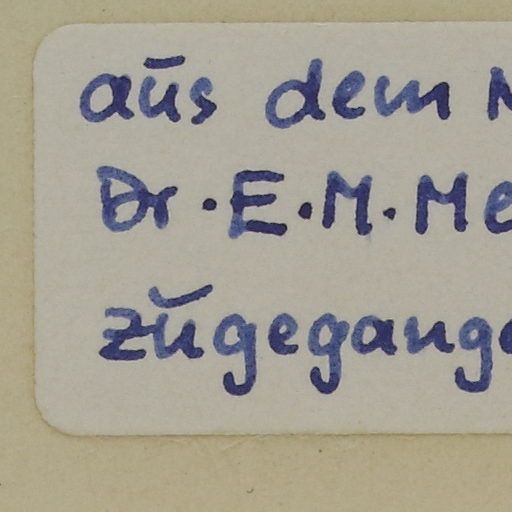 aus dem N
Dr. E. M. Me
zugegange